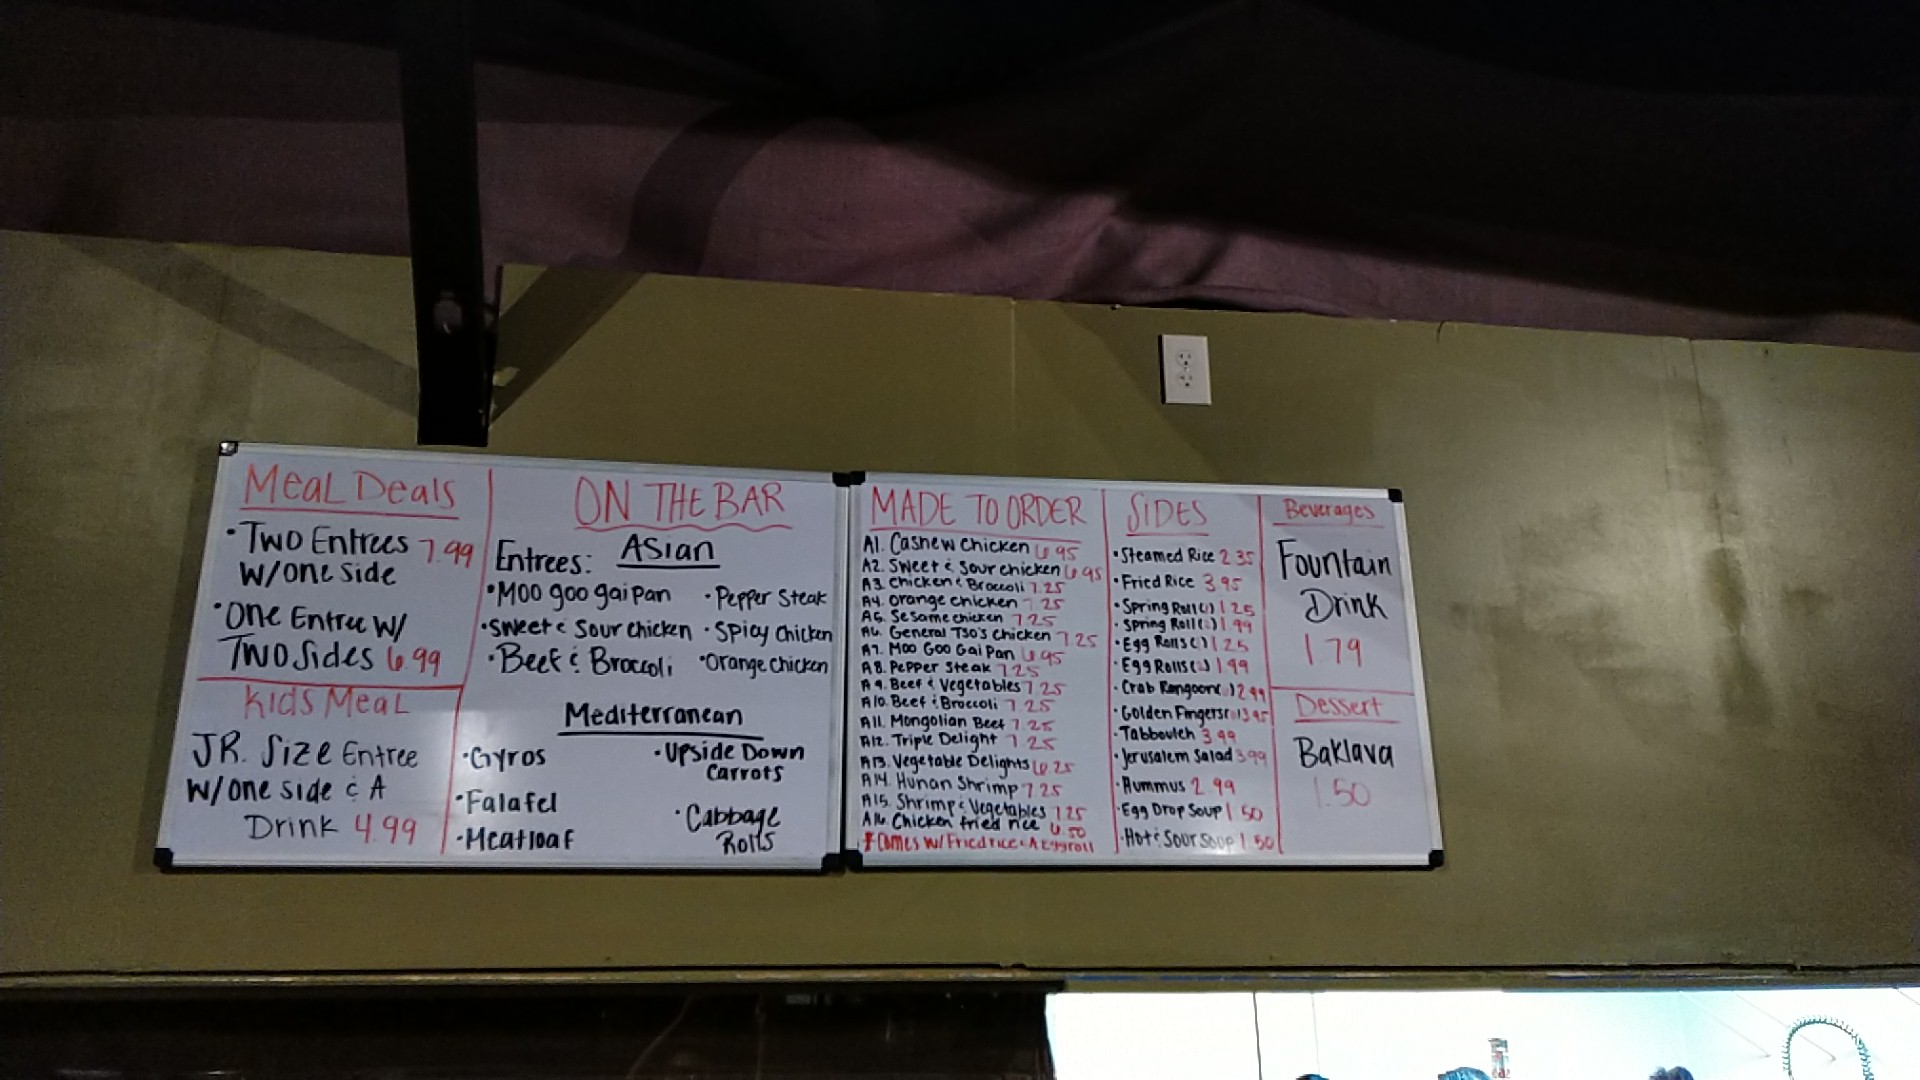 Meal Deals
• Two Entrees 7.99
w/one side
• One Entree w/
Two Sides 6.99
Kids Meal
JR. Size Entree
w/one side & A
Drink 4.99
ON THE BAR
Entrees: Asian
• Moo goo gai pan
• Pepper Steak
• Sweet & Sour chicken
• Spicy Chicken
• Beef & Broccoli
• Orange chicken
Mediterranean
• Gyros
• Upside Down
Carrots
• Falafel
• Cabbage
Rolls
• Meatloaf
MADE TO ORDER
A1. Cashew Chicken 6.95
A2. Sweet & Sour chicken 6.95
A3. Chicken & Broccoli 7.25
A4. Orange chicken 7.25
A5. Sesame chicken 7.25
A6. General Tso's Chicken 7.25
A7. Moo Goo Gai Pan 6.95
A8. Pepper Steak 7.25
A9. Beef & Vegetables 7.25
A10. Beef & Broccoli 7.25
A11. Mongolian Beef 7.25
A12. Triple Delight 7.25
A13. Vegetable Delights 6.25
A14. Hunan Shrimp 7.25
A15. Shrimp & Vegetables 7.25
A16. Chicken fried rice 6.50
* Comes w/ Fried rice & A Eggroll
SIDES
• Steamed Rice 2.35
• Fried Rice 3.95
• Spring Roll 1.25
• Spring Roll 1.99
• Egg Rolls 1.25
• Egg Rolls 1.99
• Crab Rangoon 2.99
• Golden Fingers 3.95
• Tabbouleh 3.99
• Jerusalem Salad 3.99
• Hummus 2.99
• Egg Drop Soup 1.50
• Hot & Sour Soup 1.50
Beverages
Fountain
Drink
1.79
Dessert
Baklava
1.50